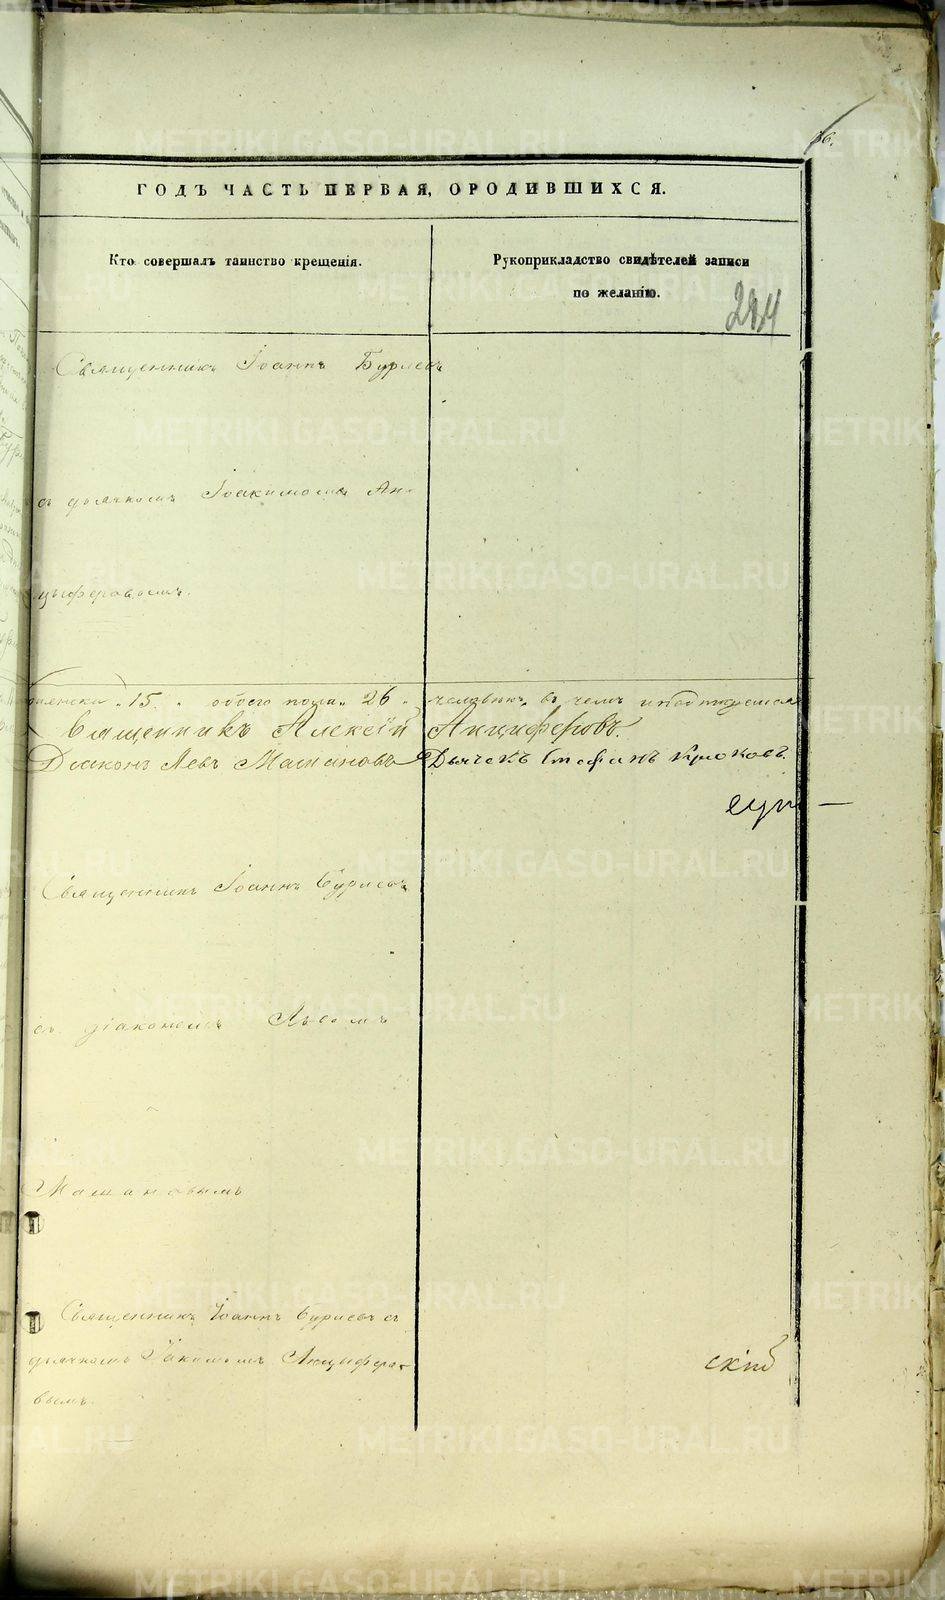 66.
ГОДЪ ЧАСТЬ ПЕРВАЯ, О РОДИВШИХСЯ.
Кто совершалъ таинство крещенія.
Рукоприкладство свидѣтелей записи
по желанію.
Священникъ Іоаннъ Бурцевъ
съ дьячкомъ Іоакимомъ Ан-
цыферовымъ.
15. обоего пола 26 человѣкъ, въ чемъ и подписуемся
Священникъ Алексій Анциферовъ.
Діаконъ Левъ Мамановъ Дьячекъ Стефанъ Крюковъ.
Священникъ Іоаннъ Бурцевъ
съ діакономъ Львомъ
Мамановымъ
Священникъ Іоаннъ Бурцевъ съ
дьячкомъ Іакимомъ Анцыферо-
вымъ.
METRIKI.GASO-URAL.RU